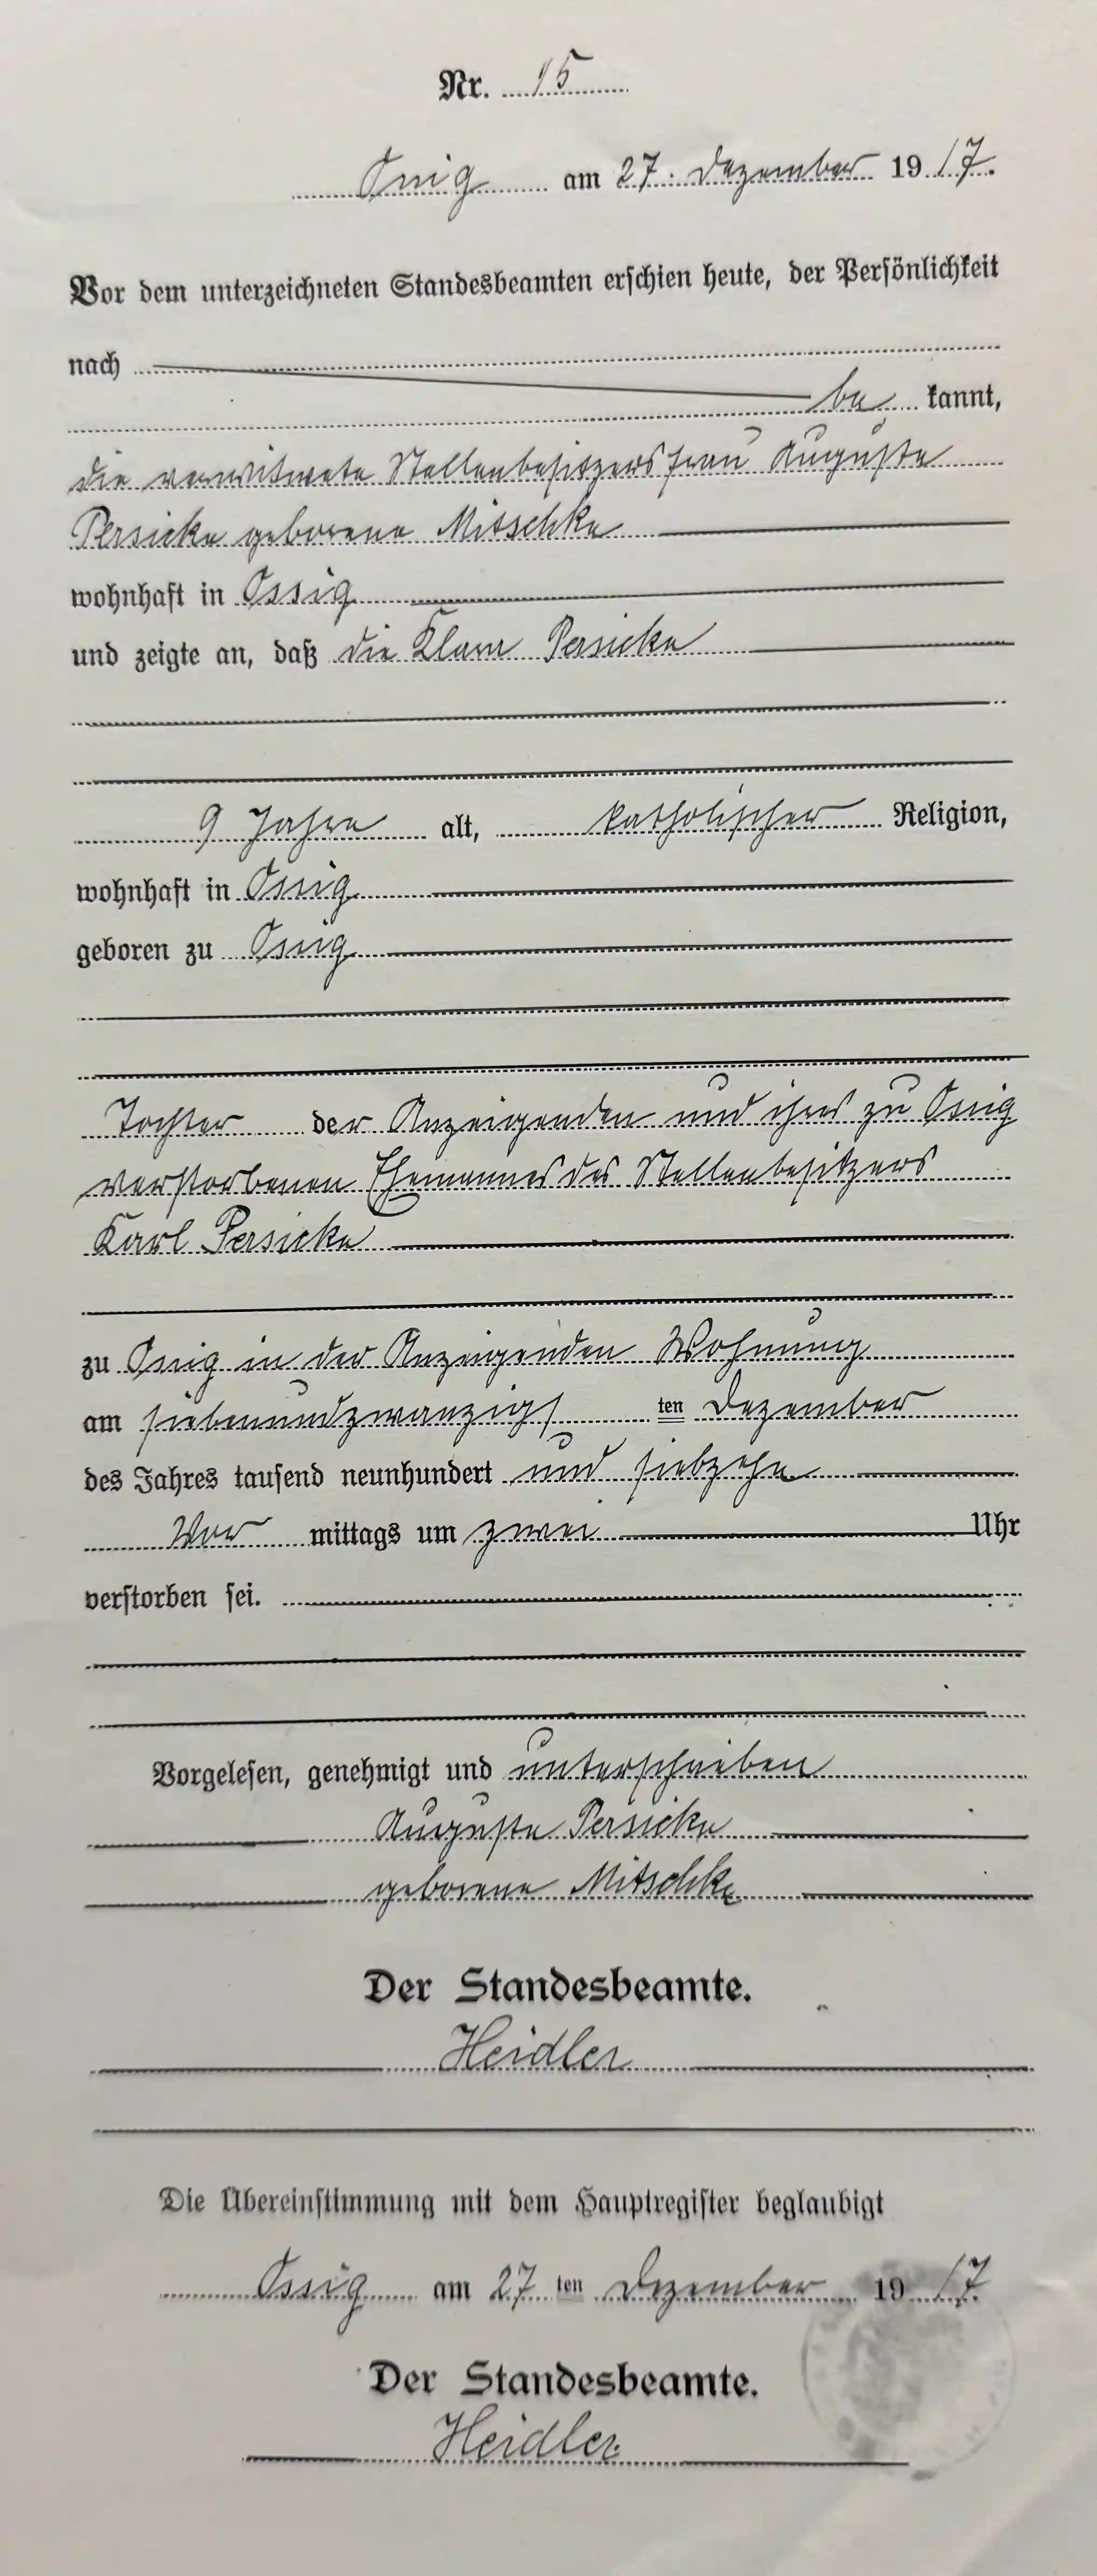 Nr. 15
Ossig am 27. Dezember 1917.
Vor dem unterzeichneten Standesbeamten erschien heute, der Persönlichkeit
nach
be kannt,
die verwitwete Stellenbesitzersfrau Auguste
Persicke geborene Mitschke
wohnhaft in Ossig
und zeigte an, daß die Klara Persicke
9 Jahre alt, katholischer Religion,
wohnhaft in Ossig
geboren zu Ossig
Tochter der Anzeigenden und ihres zu Ossig
verstorbenen Ehemannes des Stellenbesitzers
Karl Persicke
zu Ossig in der Anzeigenden Wohnung
am siebenundzwanzigs ten Dezember
des Jahres tausend neunhundert und siebzehn
Vor mittags um zwei Uhr
verstorben sei.
Vorgelesen, genehmigt und unterschrieben
Auguste Persicke
geborene Mitschke
Der Standesbeamte.
Heidler
Die Übereinstimmung mit dem Hauptregister beglaubigt
Ossig am 27 ten Dezember 1917.
Der Standesbeamte.
Heidler